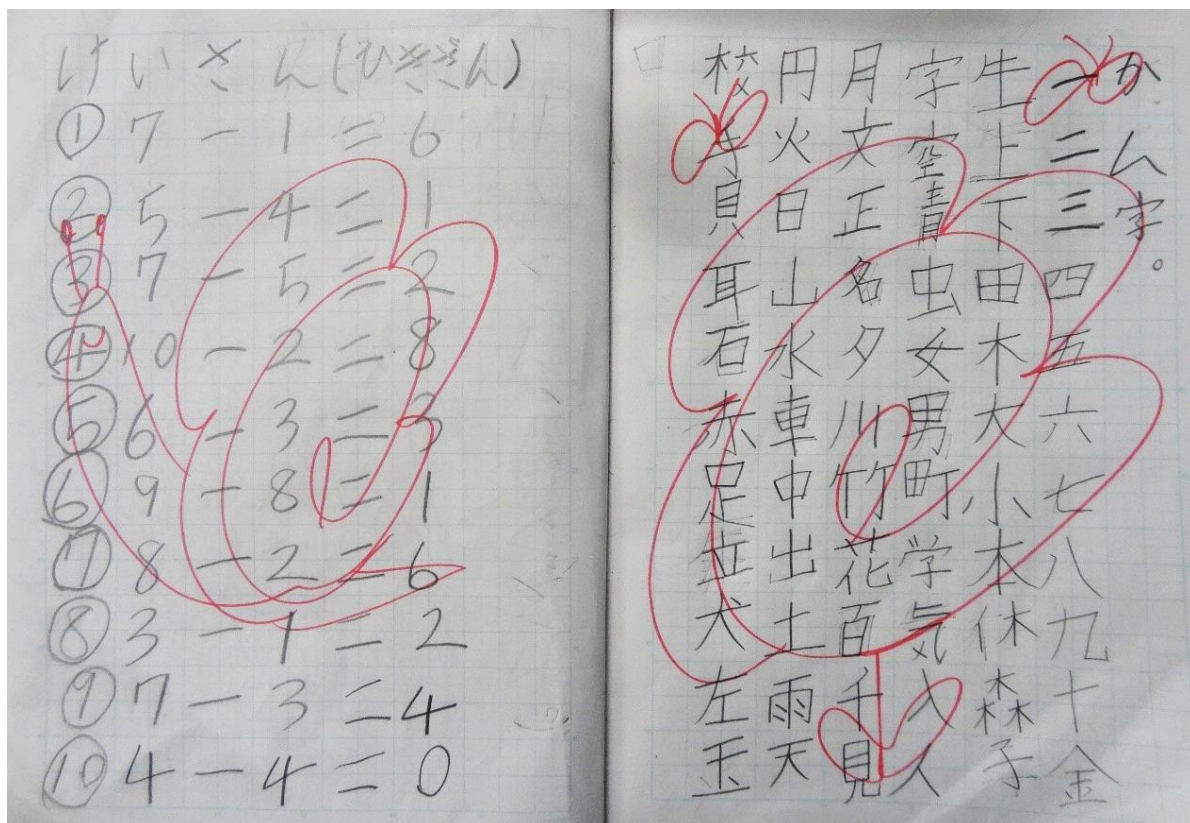 けいさん(ひきざん)
① 7－1＝6
② 5－4＝1
③ 7－5＝2
④ 10－2＝8
⑤ 6－3＝3
⑥ 9－8＝1
⑦ 8－2＝6
⑧ 3－1＝2
⑨ 7－3＝4
⑩ 4－4＝0
かん字。
一二三四五六七八九十金
生上下田木大小本休森子
字空青虫女男町学気入人
月文正名夕川竹花百千見
円火日山水車中出土雨天
校手貝耳石赤足立犬左玉